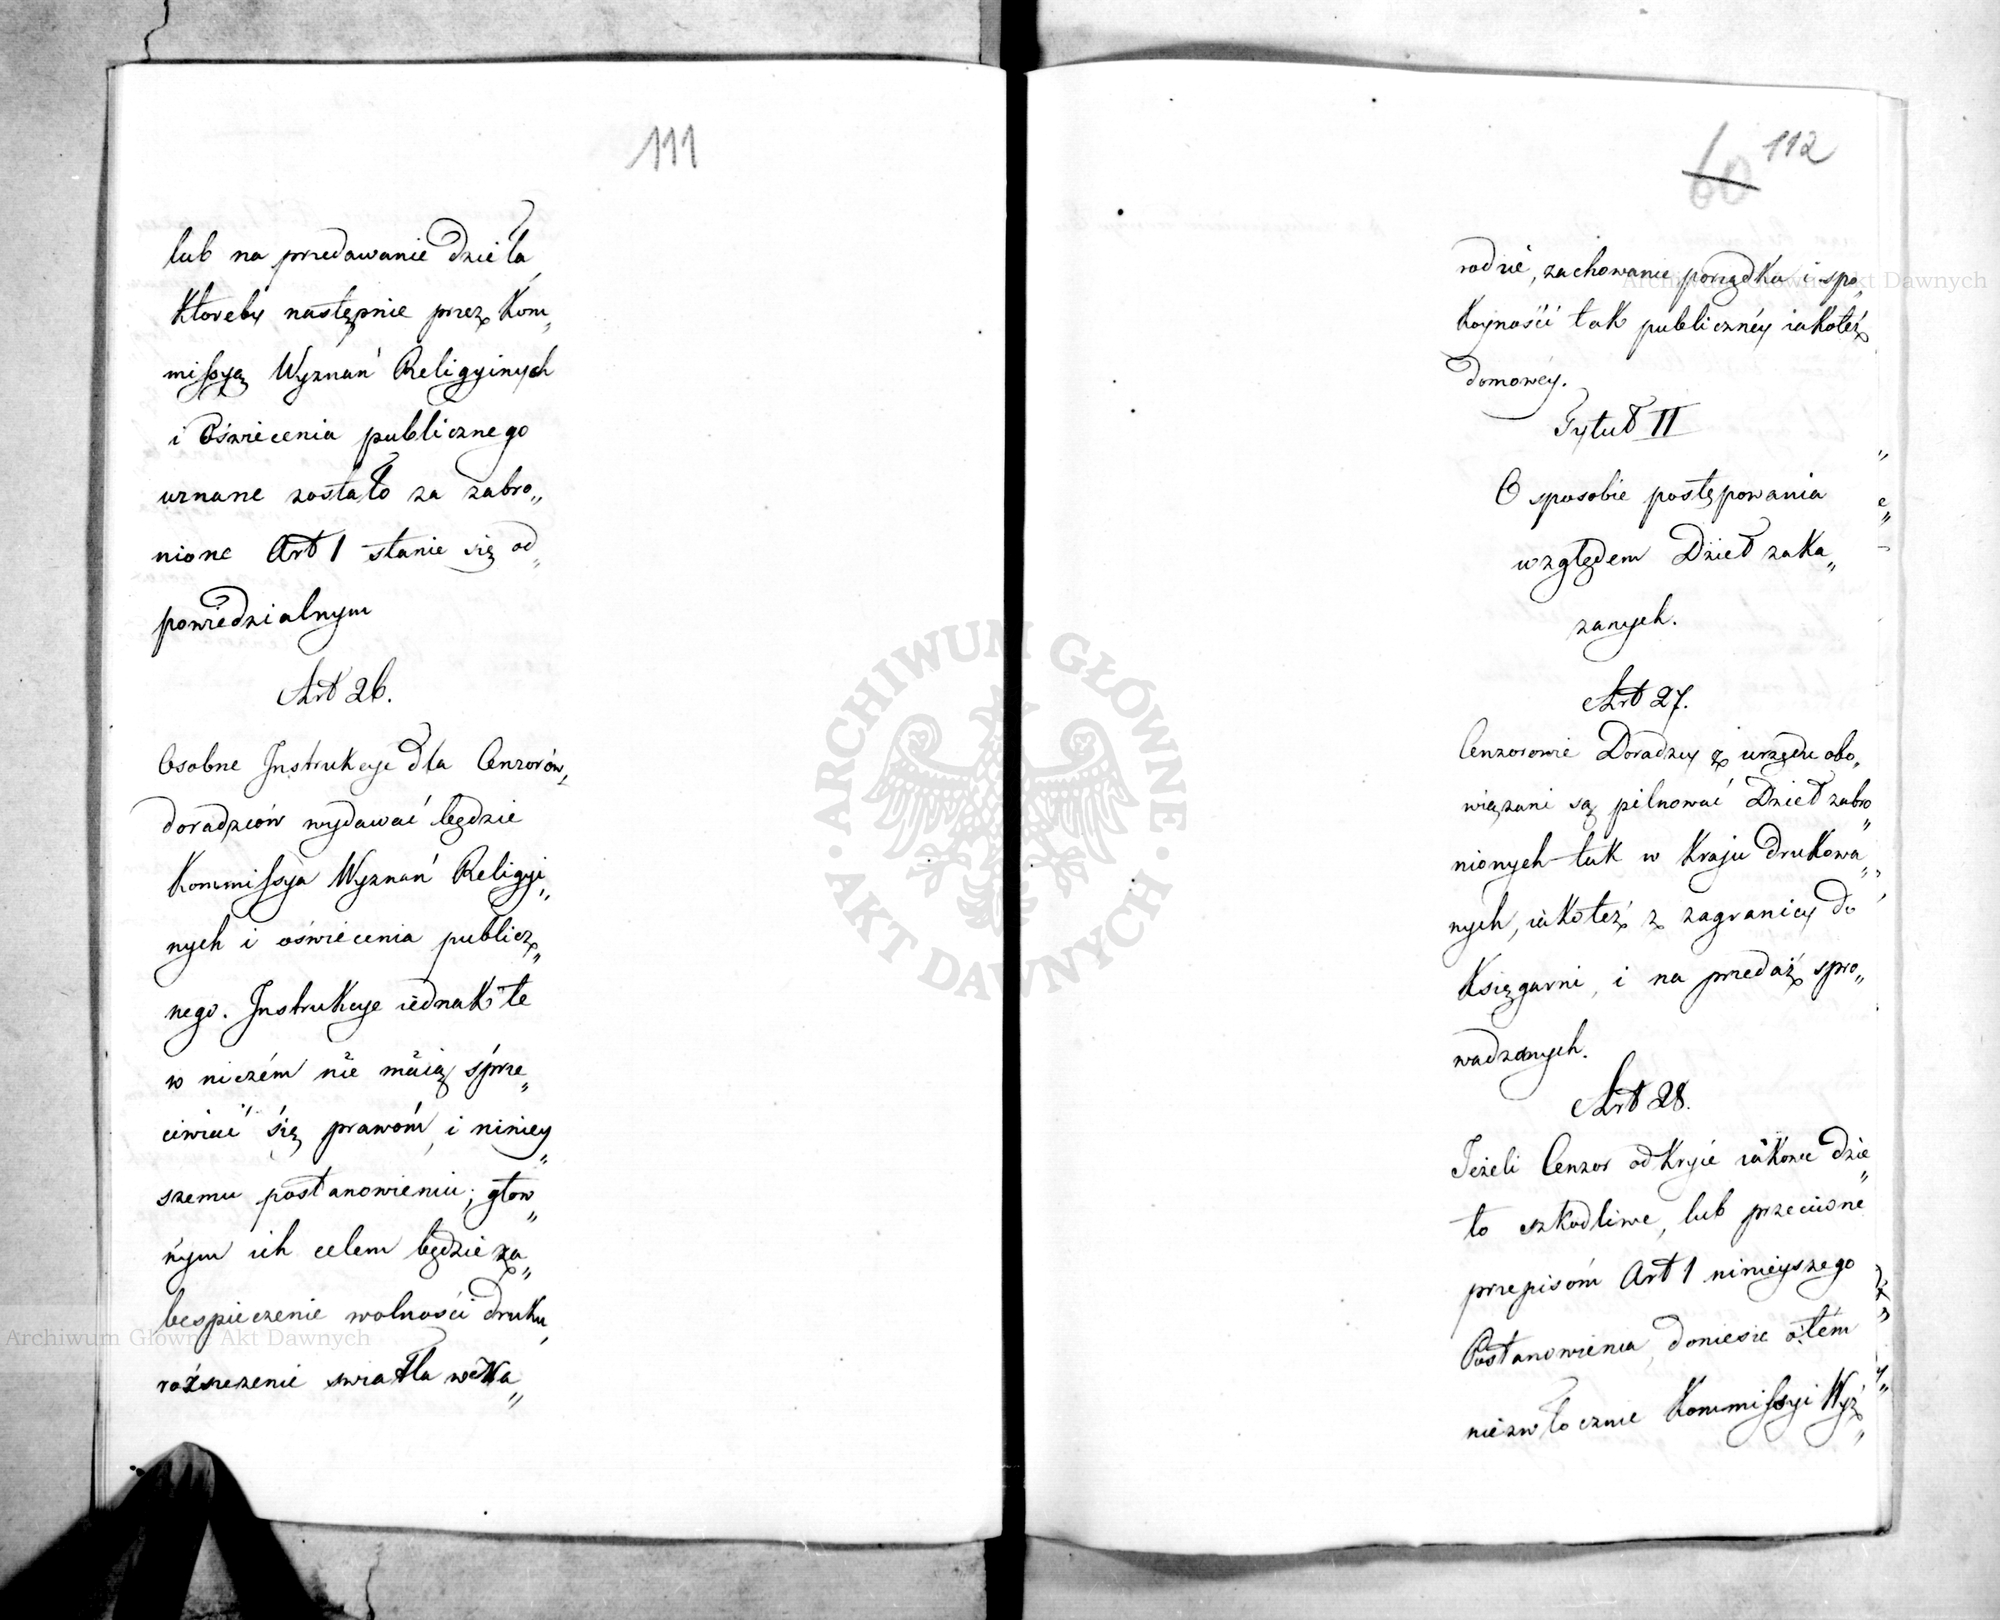 111
lub na przedawanie dzieła
któreby następnie przez Kom„
missyą Wyznań Religyinych
i Oświecenia publicznego
uznane zostało za zabro„
nione Art 1 stanie się od„
powiedzialnym
Art 26.
Osobne Instrukcye dla Cenzorów,
doradzców wydawać będzie
Kommissya Wyznań Religyi„
nych i oświecenia publicz„
nego. Instrukcye iednak te
w niczém nie máią sprze„
ciwiać się prawóm, i niniey„
szemu postanowieniu; głow„
nym ich celem będzie za„
bespieczenie wolności druku,
rozszerzenie swiatła w Na„
60 112
rodzie, zachowanie porządku i spo„
koyności tak publicznéy iakoteż
domowéy.
Tytuł II
O sposobie postępowania
względem Dzieł zaka„
zanych.
Art 27.
Cenzorowie Doradzcy z urzędu obo„
wiązani są pilnować Dzieł zabro„
nionych tak w Kraju drukowa„
nych, iakoteż z zagranicy do
Księgarni, i na przedaż spro„
wadzonych.
Art 28.
Jeżeli Cenzor odkryie iakowe dzie„
ło szkodliwe, lub przeciwne
przepisóm Art 1 ninieyszego
Postanowienia, doniesie o tém
niezwłocznie Kommissyi Wyz„
ARCHIWUM GŁÓWNE
AKT DAWNYCH
Archiwum Główne Akt Dawnych
Archiwum Główne Akt Dawnych